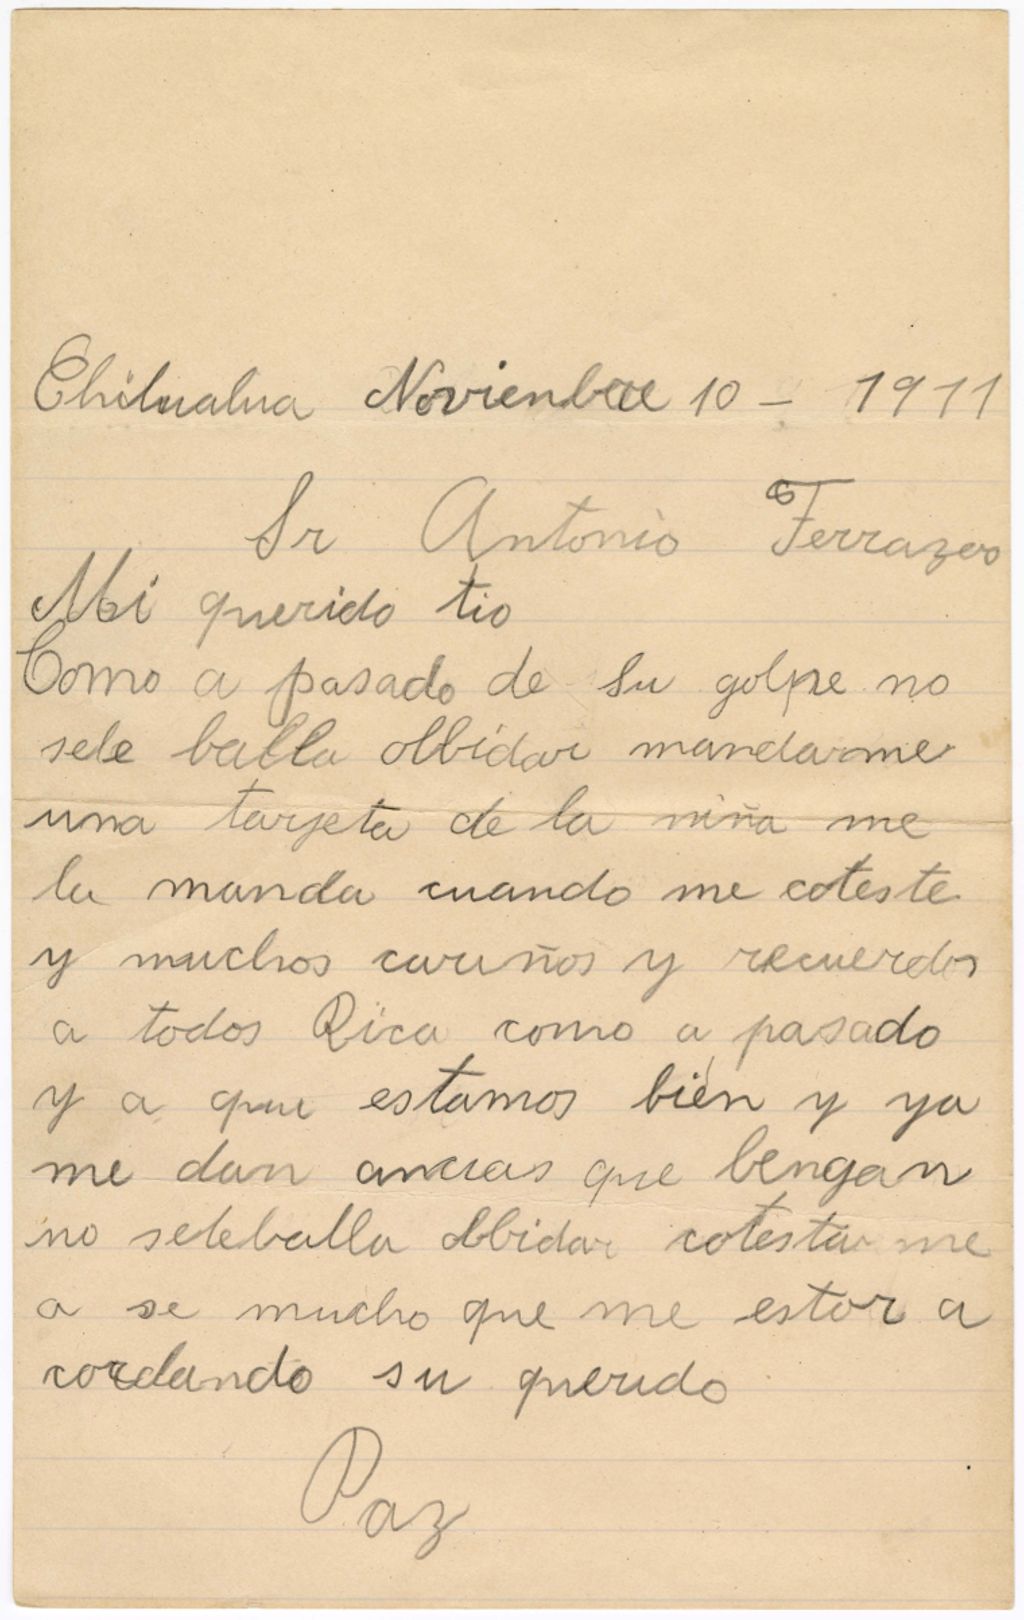 Chihuahua Novienbre 10 - 1911
Sr Antonio Terrazas
Mi querido tio
Como a pasado de su golpe no
sele balla olbidar mandarme
una tarjeta de la niña me
la manda cuando me coteste
y muchos cariños y recuerdos
a todos Rica como a pasado
y a qui estamos bien y ya
me dan ancias que bengan
no seleballa olbidar cotestarme
a se mucho que me estor a
cordando su querido
Paz